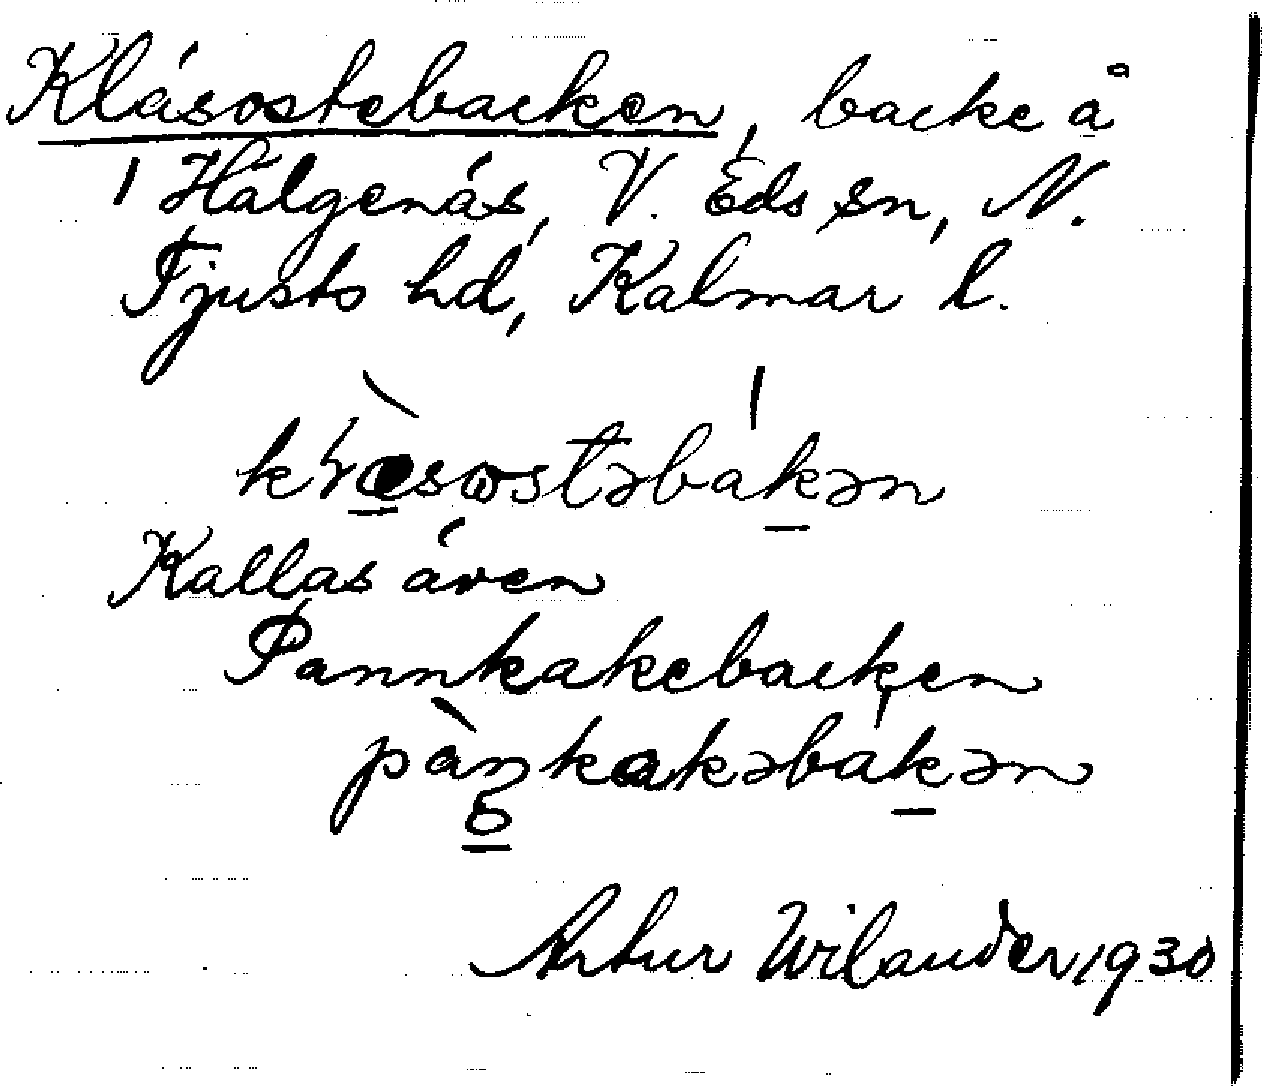 Kläsostebacken, backe å
1 Hälgenäs, V. Eds sn, N.
Tjusts hd, Kalmar l.
kɽæ̀sωstəba̍kən
Kallas även
Pannkakebacken
pàŋkakəba̍kən
Artur Wilander 1930